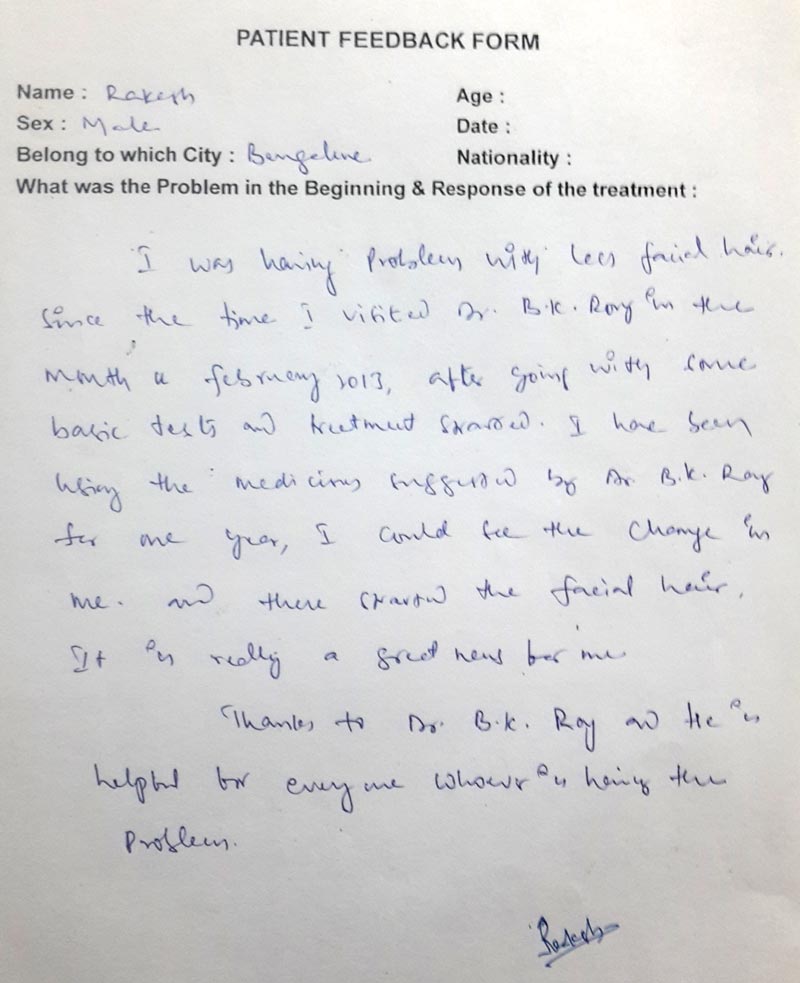 PATIENT FEEDBACK FORM
Name : Rakesh Age :
Sex : Male Date :
Belong to which City : Bangalore Nationality :
What was the Problem in the Beginning & Response of the treatment :
I was having Problem with less facial hair.
Since the time I visited Dr. B.K. Roy in the
month a february 2013, after going with some
basic tests and treetment started. I have been
using the medicines suggested by Dr. B.K. Roy
for one year, I could see the change in
me. and there started the facial hair.
It is really a great news for me
Thanks to Dr. B.K. Roy and He is
helpful for everyone whoever is having the
Problem.
Rakesh